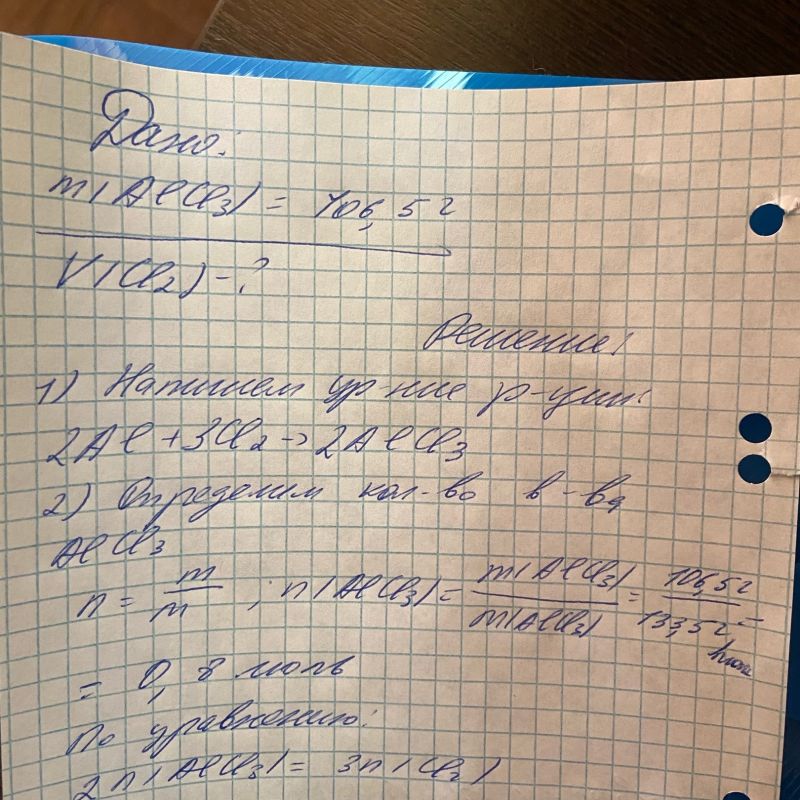 Дано:
m(AlCl₃) = 106,5г
V(Cl₂) - ?
Решение:
1) Напишем ур-ние р-ции:
2Al + 3Cl₂ → 2AlCl₃
2) Определим кол-во в-ва
AlCl₃
n = m/M ; n(AlCl₃) = m(AlCl₃)/M(AlCl₃) = 106,5г/133,5г/моль =
= 0,8 моль
По уравнению:
2n(AlCl₃) = 3n(Cl₂)